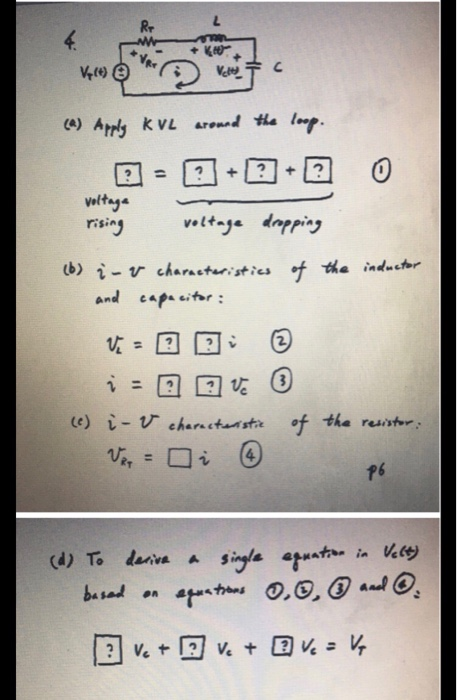 4.
R_T L
+ V_RT - + V_L(t) -
V_T(t) i + V_C(t) - C
(a) Apply KVL around the loop.
? = ? + ? + ? ①
voltage rising voltage dropping
(b) i - v characteristics of the inductor
and capacitor:
v_L = ? ? i ②
i = ? ? v_C ③
(c) i - v characteristic of the resistor:
v_RT = □ i ④
p6
(d) To derive a single equation in V_C(t)
based on equations ①, ②, ③ and ④:
? V_C + ? V_C + ? V_C = V_T